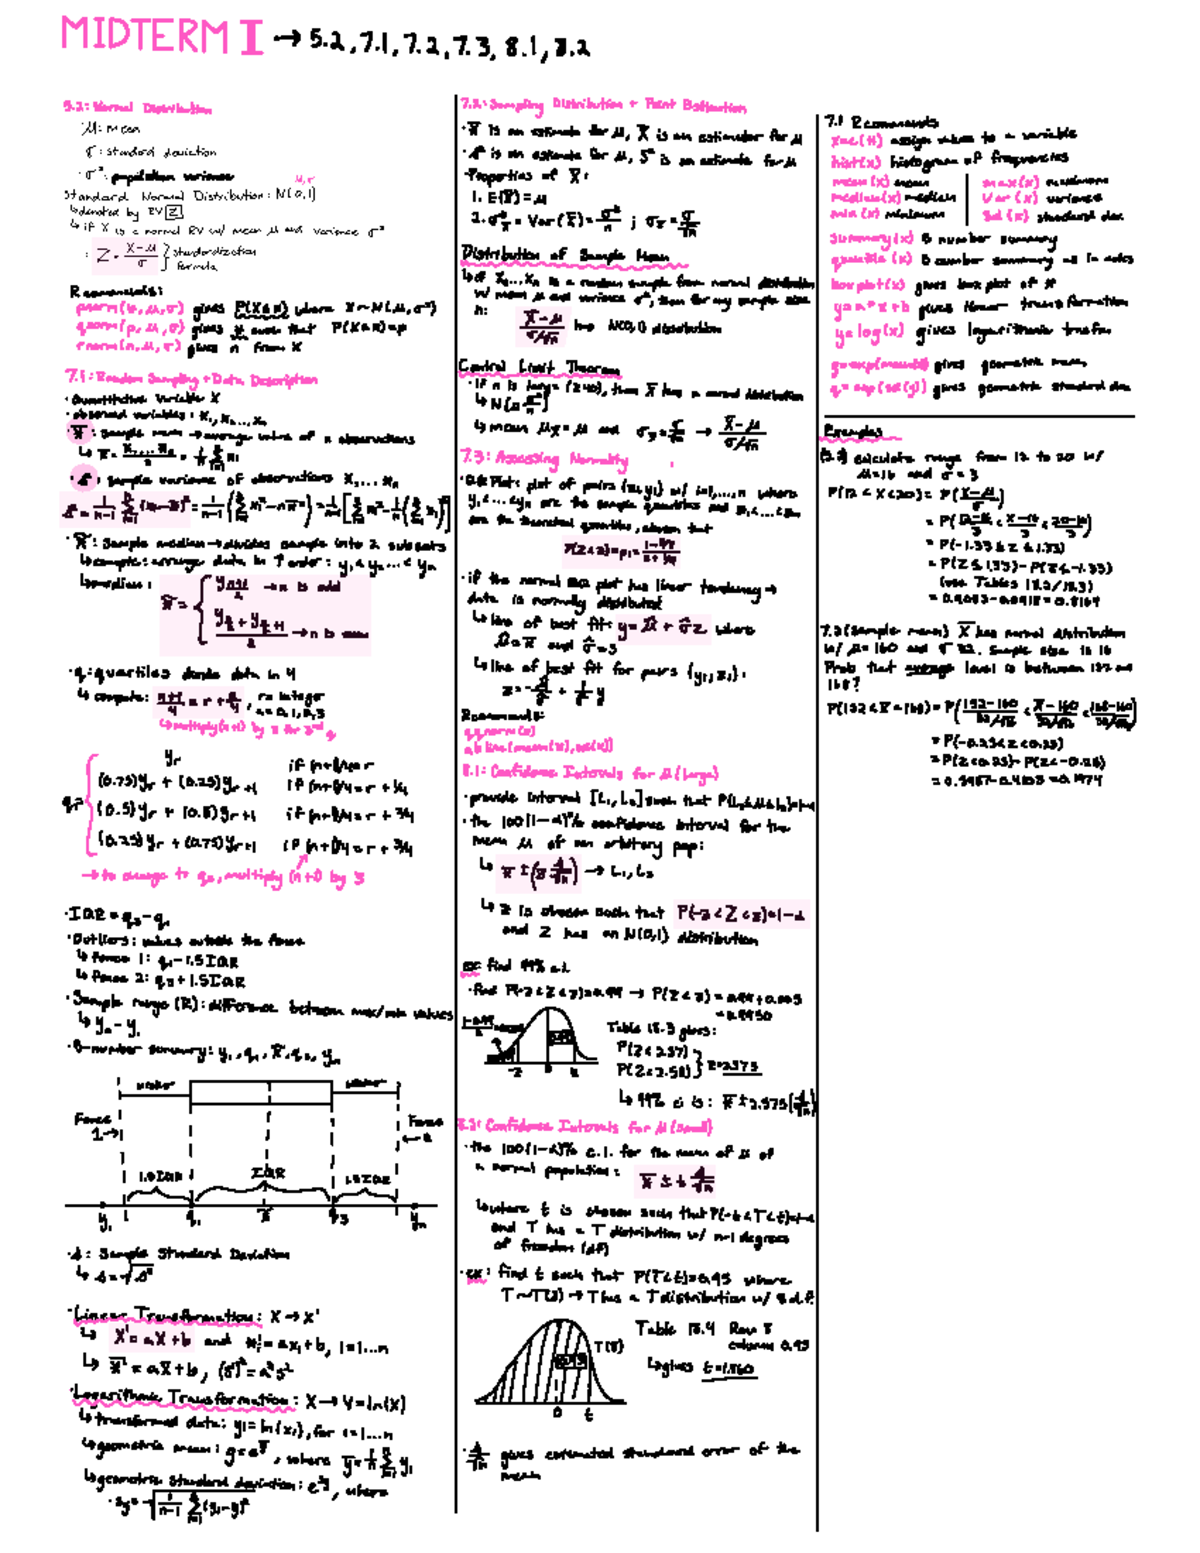 MIDTERM I → 5.2, 7.1, 7.2, 7.3, 8.1, 8.2
5.2: Normal Distribution
μ: mean
σ: standard deviation
σ²: population variance
Standard Normal Distribution: N(0,1)
μ, σ
↳ denoted by RV Z
↳ if X is a normal RV w/ mean μ and variance σ²
: Z = (X-μ)/σ } standardization formula
R commands:
pnorm(b, μ, σ) gives P(X≤b) where X~N(μ, σ²)
qnorm(p, μ, σ) gives x such that P(X≤x)=p
rnorm(n, μ, σ) gives n from X
7.1: Random Sampling + Data Description
· Quantitative Variable X
· observed variables: x₁, x₂, ..., xₙ
· x̄: sample mean → average value of n observations
· s²: sample variance of observations x₁, ... xₙ
s² = 1/(n-1) Σ(xᵢ-x̄)² = 1/(n-1) (Σxᵢ² - n x̄²) = 1/(n-1) [Σxᵢ² - 1/n (Σxᵢ)²]
· x̃: sample median → divides sample into 2 subsets
↳ compute: arrange data in ↑ order: y₁ < y₂ ... < yₙ
↳ median:
x̃ = { y(n+1)/2 → n is odd
(y n/2 + y n/2 +1)/2 → n is even
· q: quartiles divide data in 4
↳ compute: (n+1)/4 = r + a/4, r = integer
a = 0, 1, 2, 3
↳ multiply (n+1) by 3 for 3rd q
yr if (n+1)/4 = r
(0.75)yr + (0.25)yr+1 if (n+1)/4 = r + 1/4
(0.5)yr + (0.5)yr+1 if (n+1)/4 = r + 3/4
(0.25)yr + (0.75)yr+1 if (n+1)/4 = r + 3/4
→ to change to q₃, multiply (n+1) by 3
· IQR = q₃ - q₁
· Outliers: values outside the fence
↳ fence 1: q₁ - 1.5IQR
↳ fence 2: q₃ + 1.5IQR
· Sample range (R): difference between max/min values
↳ yₙ - y₁
· 5-number summary: y₁, q₁, x̃, q₃, yₙ
whisker whisker
Fence 1→ Fence ←2
1.5IQR IQR 1.5IQR
y₁ q₁ x̃ q₃ yₙ
· s: Sample Standard Deviation
↳ s = √s²
· Linear Transformation: X → X'
↳ X' = aX + b and xᵢ' = axᵢ + b, i = 1...n
↳ x̄' = ax̄ + b, (s')² = a²s²
· Logarithmic Transformation: X → Y = ln(X)
↳ transformed data: yᵢ = ln(xᵢ), for i = 1...n
↳ geometric mean: g = e^ȳ, where ȳ = 1/n Σyᵢ
↳ geometric standard deviation: e^sy, where
· sy = √(1/(n-1) Σ(yᵢ-ȳ)²)
7.2: Sampling Distribution + Point Estimation
· x̄ is an estimate for μ, X̄ is an estimator for μ
· s² is an estimate for μ, S² is an estimate for μ
· Properties of X̄:
1. E(X̄) = μ
2. σ²x̄ = Var(X̄) = σ²/n ; σx̄ = σ/√n
Distribution of Sample Mean
↳ if X₁...Xₙ is a random sample from normal distribution
w/ mean μ and variance σ², then for any sample size
n: (X̄-μ)/(σ/√n) has N(0,1) distribution
Central Limit Theorem
· if n is large (≥40), then X̄ has a normal distribution
↳ N(μ, σ²/n)
↳ mean μx̄ = μ and σx̄ = σ/√n → (X̄-μ)/(σ/√n)
7.3: Assessing Normality
· QQ Plot: plot of pairs (zᵢ, yᵢ) w/ i=1,...,n where
y₁<...<yₙ are the sample quantiles and z₁<...<zₙ
are the theoretical quantiles, chosen that
· if the normal QQ plot has linear tendency →
data is normally distributed
↳ line of best fit: y = μ̂ + σ̂z where
μ̂ = x̄ and σ̂ = s
↳ line of best fit for pairs (yᵢ, zᵢ):
z = -x̄/s + 1/s y
R commands:
qqnorm(x)
abline(mean(x), sd(x))
8.1: Confidence Intervals for μ (Large)
· provide interval [L₁, L₂] such that P(L₁≤μ≤L₂)=1-α
· the 100(1-α)% confidence interval for the
mean μ of an arbitrary pop:
↳ x̄ ± (z s/√n) → L₁, L₂
↳ z is chosen such that P(-z<Z<z)=1-α
and Z has an N(0,1) distribution
ex: find 99% c.i.
· find P(-z<Z<z)=0.99 → P(Z<z) = 0.99+0.005
= 0.9950
-z 0 z
Table 18.3 gives:
P(Z<2.57)
P(Z<2.58) } z=2.575
↳ 99% ci is: x̄ ± 2.575(s/√n)
8.2: Confidence Intervals for μ (Small)
· the 100(1-α)% c.i. for the mean of μ of
a normal population: x̄ ± t s/√n
↳ where t is chosen such that P(-t<T<t)=1-α
and T has a T distribution w/ n-1 degrees
of freedom (df)
· ex: find t such that P(T<t)=0.95 where
T~T(8) → T has a T distribution w/ 8 d.f.
T(8)
0.95
0 t
Table 18.4 Row 8
column 0.95
↳ gives t=1.860
· s/√n gives estimated standard error of the
mean
7.1 R commands
x=c(#) assign values to a variable
hist(x) histogram of frequencies
mean(x) mean
median(x) median
min(x) minimum
max(x) maximum
var(x) variance
sd(x) standard dev
summary(x) 5 number summary
quantile(x) 5 number summary
boxplot(x) gives box plot of x
y=a*x+b gives linear transformation
y=log(x) gives logarithmic transfor.
g=exp(mean(y)) gives geometric mean
q=exp(sd(y)) gives geometric standard dev
Examples
(5.2) calculate range from 12 to 20 w/
μ=16 and σ=3
P(12<X<20) = P((X-μ)/σ)
= P((12-16)/3 < (X-16)/3 < (20-16)/3)
= P(-1.33≤Z≤1.33)
= P(Z≤1.33) - P(Z≤-1.33)
(use Tables 18.2/18.3)
= 0.9082-0.0918 = 0.8164
7.2 (Sample mean) X̄ has normal distribution
w/ μ=160 and σ 32. Sample size is 16
Prob that average level is between 152 and
168?
= P(-0.25<Z<0.25)
= P(Z<0.25) - P(Z<-0.25)
= 0.5987-0.4013 = 0.1974